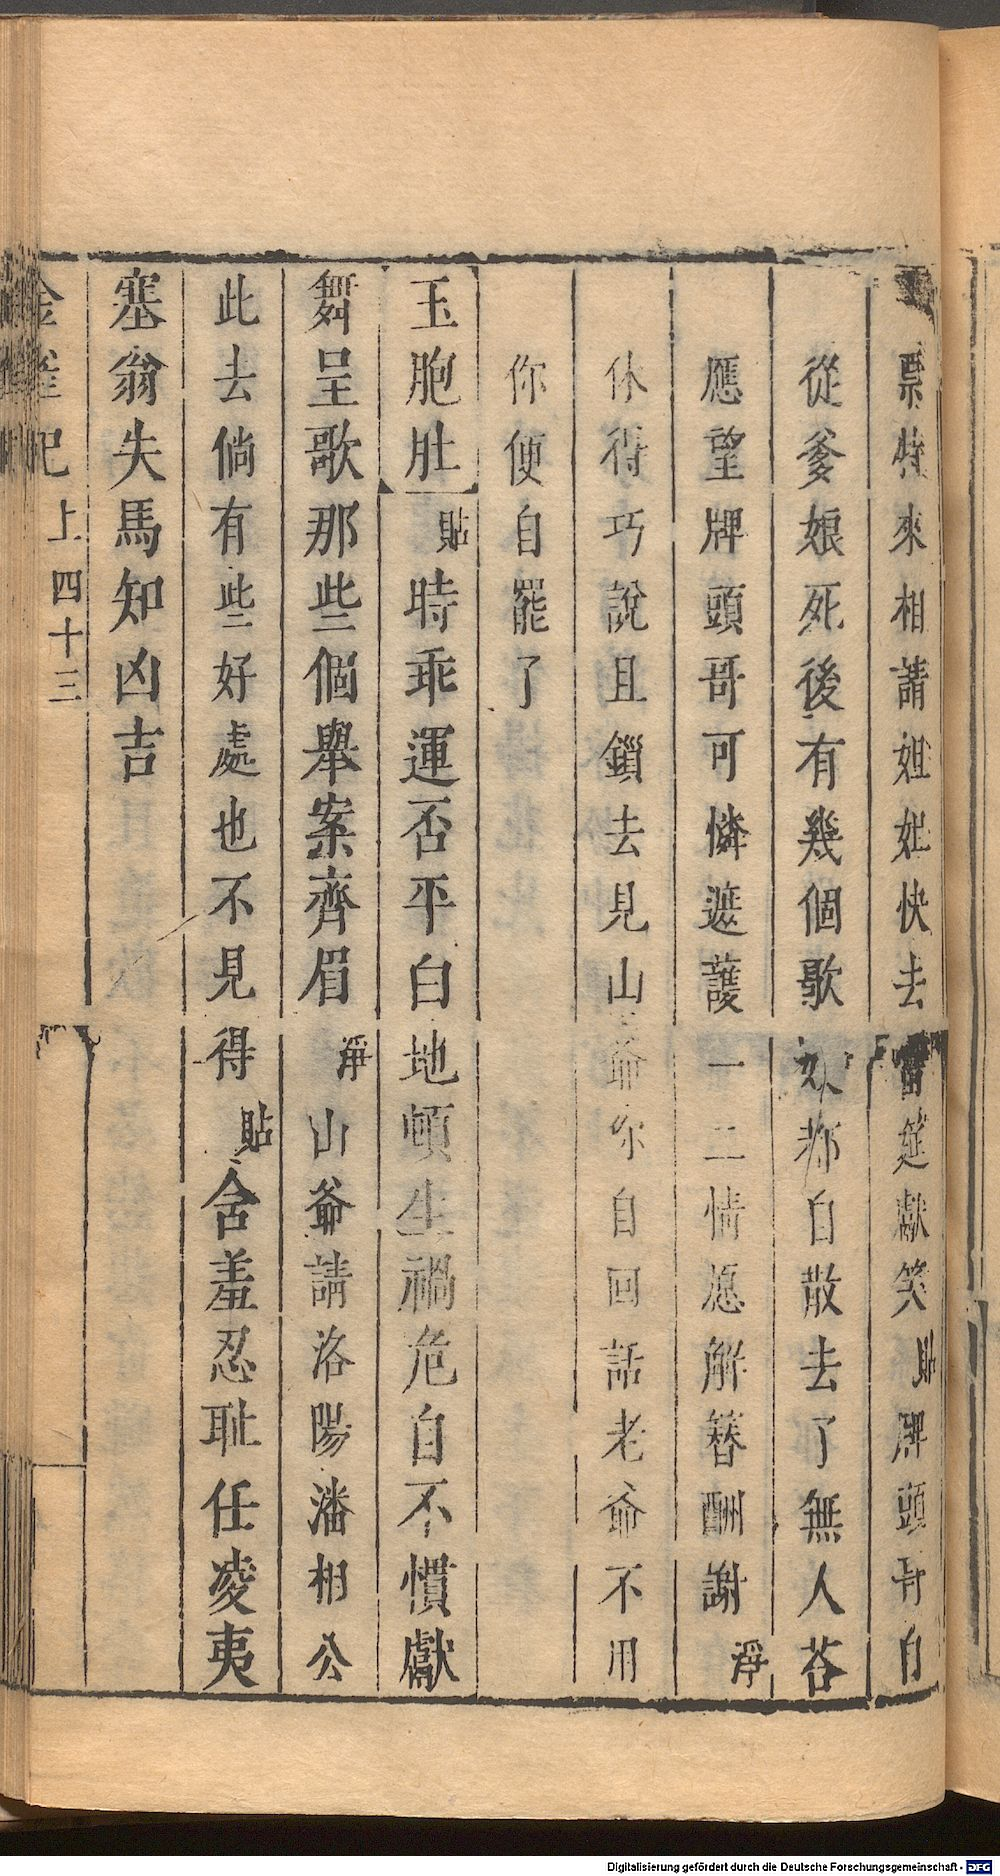 票特來相請姐姐快去當筵獻笑貼牌頭哥自
從爹娘死後有幾個歌妓都自散去了無人荅
應望牌頭哥可憐遮護一二情愿觧簪酬謝淨
休得巧說且鎖去見山爺你自回話老爺不用
你便自罷了
玉胞肚貼時乖運否平白地頓生禍危自不慣獻
舞呈歌那些個舉案齊眉淨山爺請洛陽潘相公
此去倘有些好處也不見得貼含羞忍耻任凌夷
塞翁失馬知凶吉
金雀記上四十三
Digitalisierung gefördert durch die Deutsche Forschungsgemeinschaft - DFG